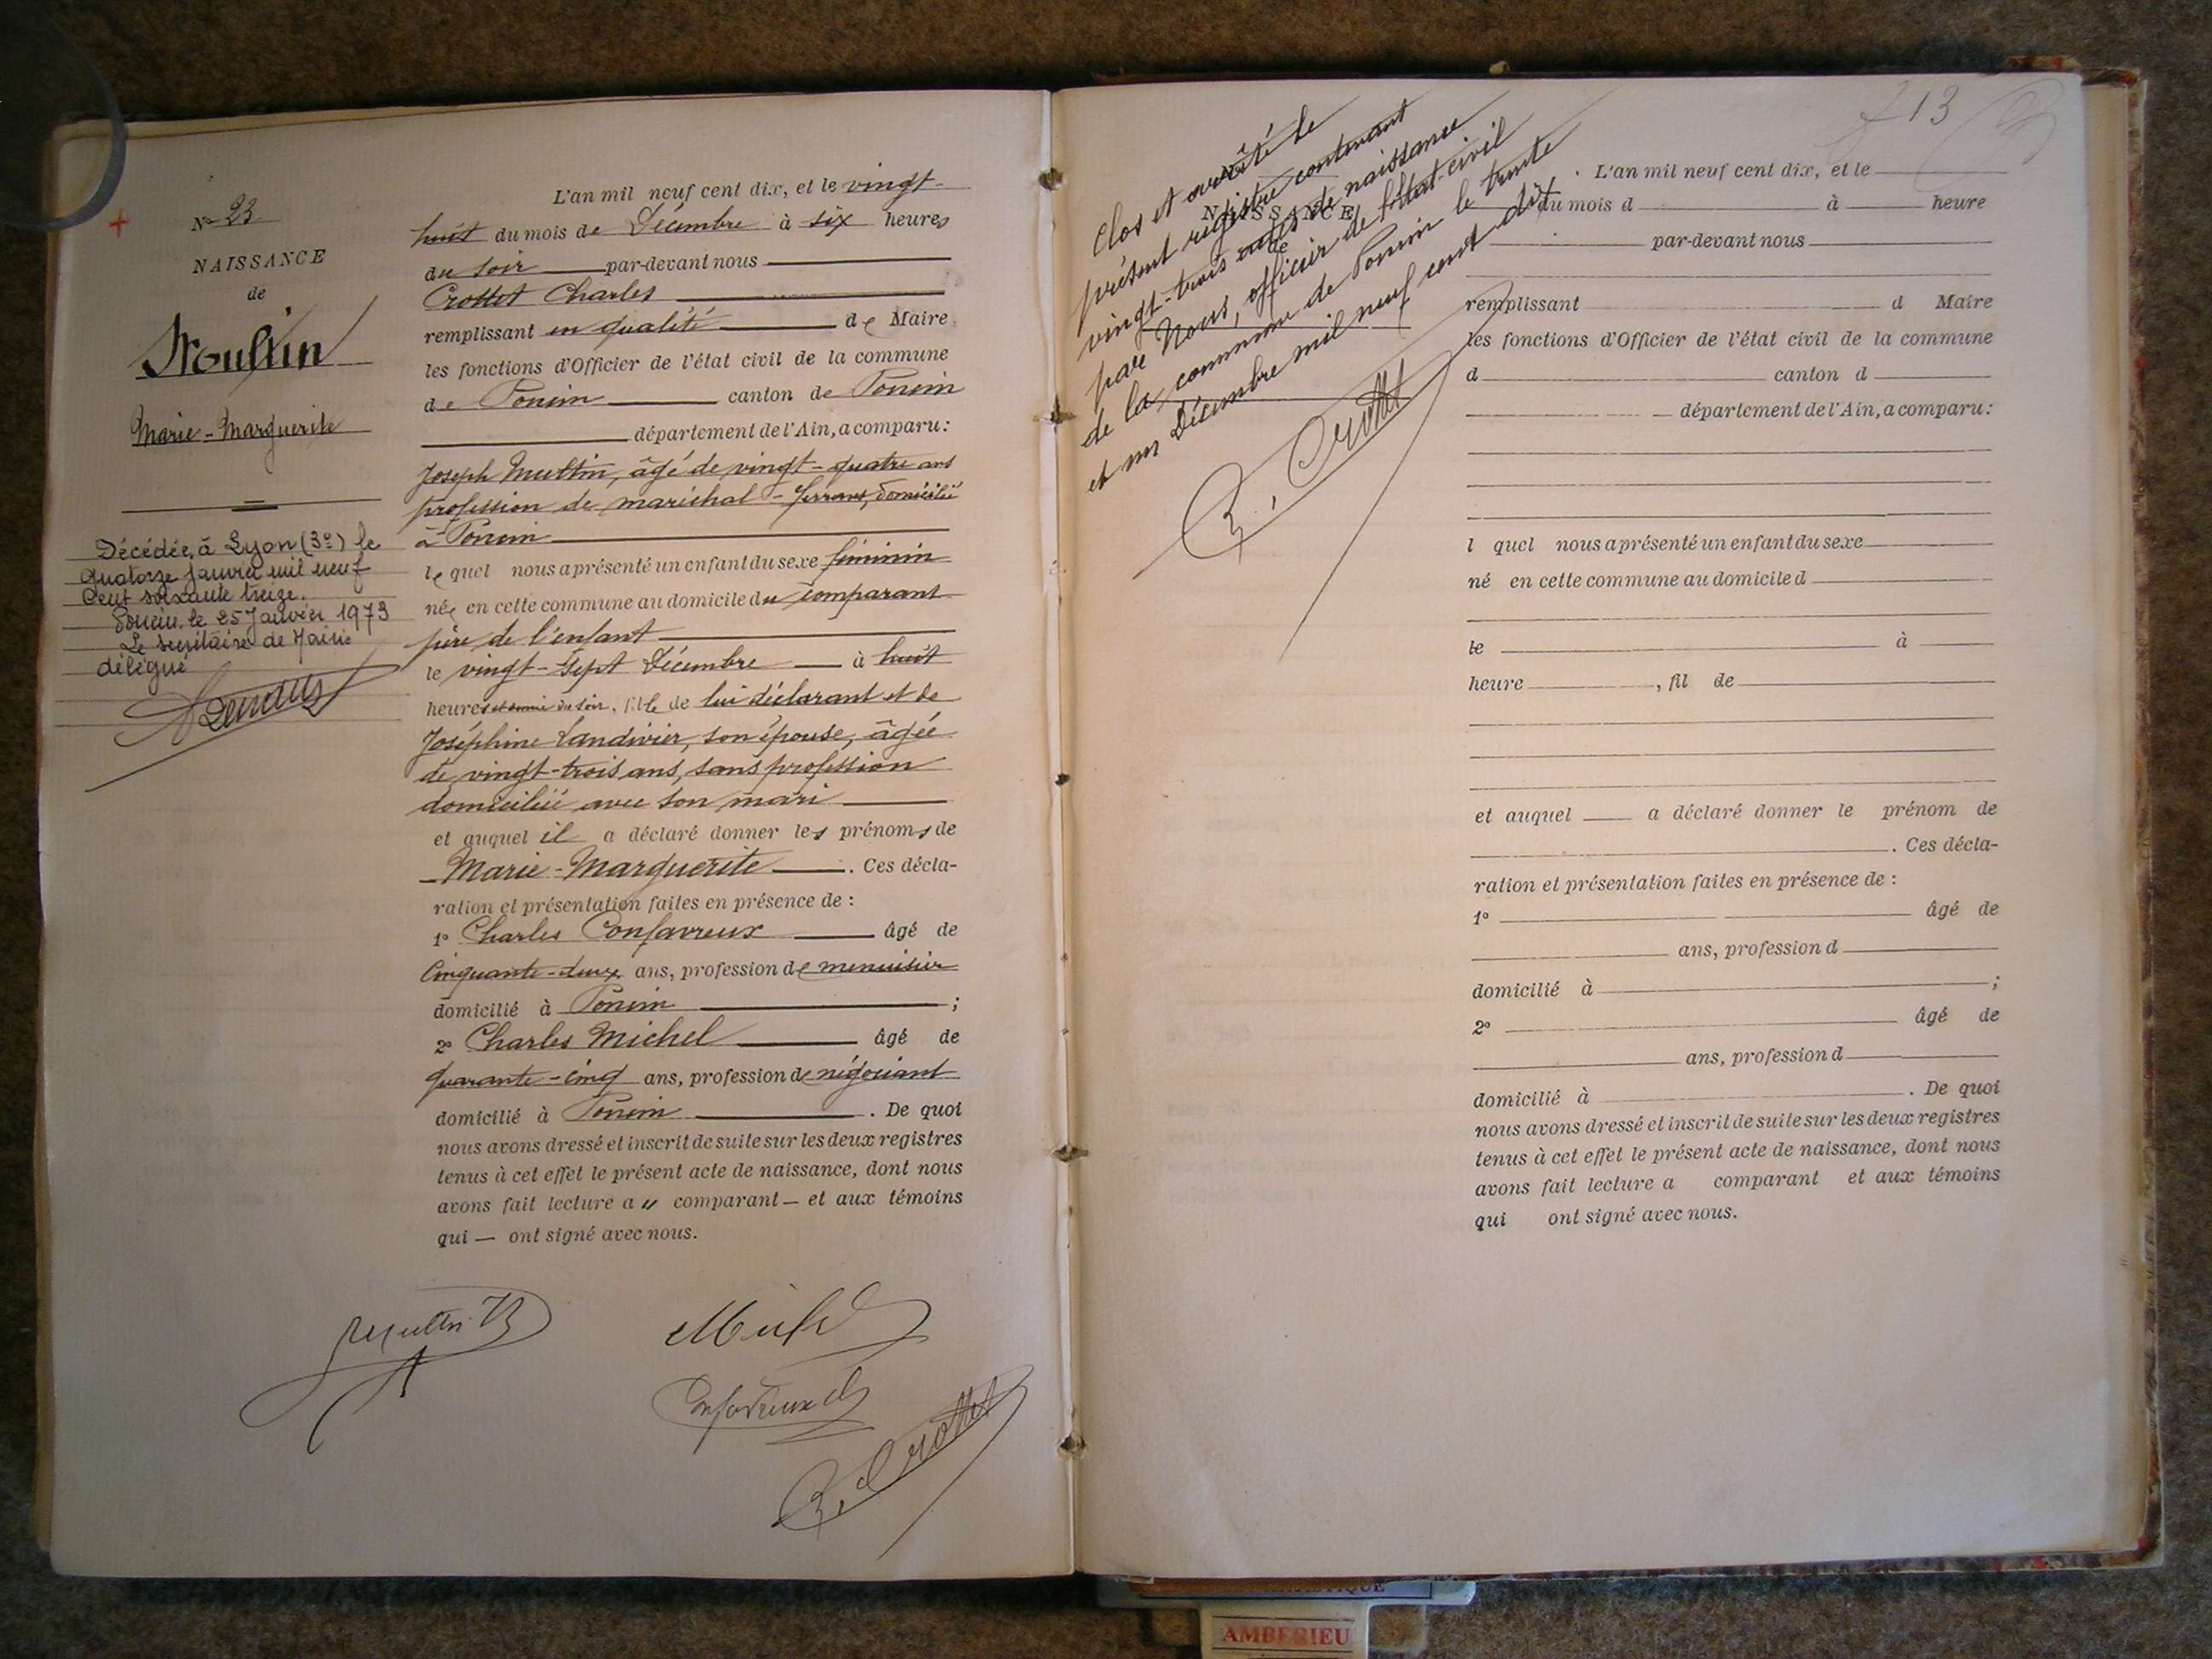 N° 23
NAISSANCE
de
Moultin
Marie-Marguerite
Décédée, à Lyon (3e) le
quatorze Janvier mil neuf
cent soixante treize.
Poncin, le 25 Janvier 1973
Le secrétaire de Mairie
délégué
L'an mil neuf cent dix, et le vingt-
huit du mois de Décembre à six heures
du soir par-devant nous
Crottet Charles
remplissant en qualité de Maire
les fonctions d'Officier de l'état civil de la commune
de Poncin canton de Poncin
département de l'Ain, a comparu:
Joseph Multin, âgé de vingt-quatre ans
profession de maréchal-ferrant, domicilié
à Poncin
le quel nous a présenté un enfant du sexe féminin
née en cette commune au domicile du comparant
père de l'enfant
le vingt-sept Décembre à huit
heures et demie du soir, fille de lui déclarant et de
Joséphine Landivier, son épouse, âgée
de vingt-trois ans, sans profession
domiciliée avec son mari
et auquel il a déclaré donner les prénoms de
Marie-Marguerite. Ces décla-
ration et présentation faites en présence de :
1° Charles Confavreux âgé de
Cinquante-deux ans, profession de menuisier
domicilié à Poncin ;
2° Charles Michel âgé de
quarante-cinq ans, profession de négociant
domicilié à Poncin. De quoi
nous avons dressé et inscrit de suite sur les deux registres
tenus à cet effet le présent acte de naissance, dont nous
avons fait lecture au comparant — et aux témoins
qui — ont signé avec nous.
Confavreux
Crottet
213
Clos et arrêté le
présent registre contenant
vingt-trois actes de naissance
par Nous, officier de l'état-civil
de la commune de Poncin le trente
et un Décembre mil neuf cent dix
Crottet
NAISSANCE
de
L'an mil neuf cent dix, et le
du mois d à heure
par-devant nous
remplissant d Maire
les fonctions d'Officier de l'état civil de la commune
d canton d
département de l'Ain, a comparu:
l quel nous a présenté un enfant du sexe
né en cette commune au domicile d
le à
heure , fil de
et auquel a déclaré donner le prénom de
. Ces décla-
ration et présentation faites en présence de :
1° âgé de
ans, profession d
domicilié à ;
2° âgé de
ans, profession d
domicilié à . De quoi
nous avons dressé et inscrit de suite sur les deux registres
tenus à cet effet le présent acte de naissance, dont nous
avons fait lecture a comparant et aux témoins
qui ont signé avec nous.
AMBERIEU